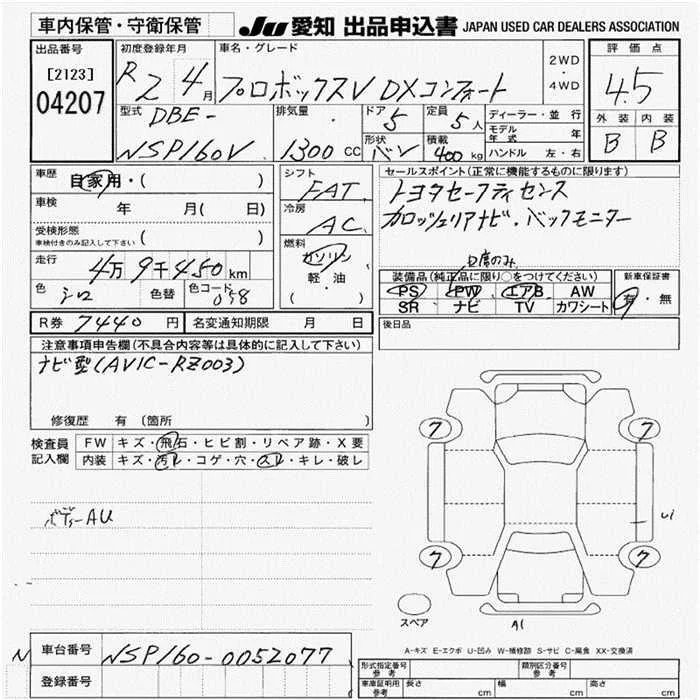 車内保管・守衛保管
JU 愛知 出品申込書 JAPAN USED CAR DEALERS ASSOCIATION
出品番号 初度登録年月 車名・グレード 2WD・4WD 評価点
[2123] R2 4月 プロボックスV DXコンフォート 4.5
04207
型式 排気量 ドア 定員 ディーラー・並行 外装 内装
DBE- 5 5人 モデル年式 年 B B
NSP160V 1300CC 形状 バン 積載 400kg ハンドル 左・右
車歴 自家用・( ) シフト FAT セールスポイント(正常に機能するものに限ります)
車検 年 月( 日) 冷房 AC トヨタセーフティセンス
受検形態 ( ) カロッツェリアナビ・バックモニター
車検付きのみ記入して下さい
燃料 ガソリン
軽・油
( )
走行 4万9千450km
色 シロ 色替 色コード 058
R券 7440円 名変通知期限 月 日
装備品(純正品に限り○をつけてください) 新車保証書
PS PW エアB AW 有・無
SR ナビ TV カワシート
後日品
注意事項申告欄(不具合内容等は具体的に記入して下さい)
ナビ型(AVIC-RZ003)
修復歴 有 (箇所 )
検査員 FW キズ・飛石・ヒビ割・リペア跡・X要
記入欄 内装 キズ・汚レ・コゲ・穴・スレ・キレ・破レ
ボデーAU
7 7
U1
7 7
スペア A1
A-キズ E-エクボ U-凹み W-補修跡 S-サビ C-腐食 XX-交換済
N 車台番号 NSP160-0052077
登録番号
形式指定番号 参考 類別区分番号 参考
車庫証明用 参考 長さ cm 幅 cm 高さ cm